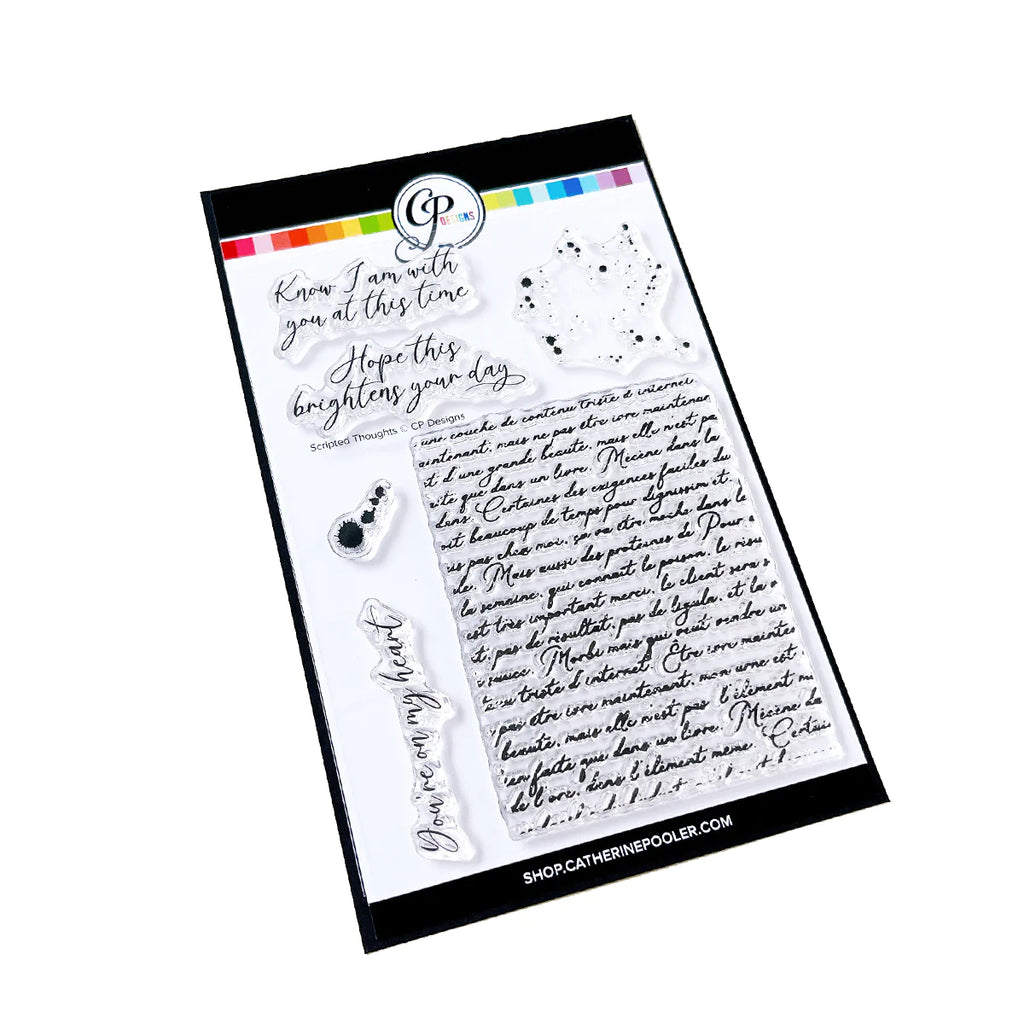 CP
DESIGNS
Know I am with
you at this time
Hope this
brightens your day
Scripted Thoughts © CP Designs
You're on my heart
une couche de contenu triste d internet
maintenant, mais ne pas être ivre maintenan
t d'une grande beauté, mais elle n'est pa
que dans un livre. Mécène dans la
dans. Certaines des exigences faciles du
oit beaucoup de temps pour dignissim et,
us pas chez moi, ça va être moche dans le
de. Mais aussi des protéines de Pour
la semaine, qui connaît le poison, le risu
est très important merci, le client sera s
t, pas de résultat, pas de ligula, et la
Morbi mais qui veut vendre un
triste d'internet. Etre ivre mainte
pas être ivre maintenant, mon urne est
beauté, mais elle n'est pas l'élément m
en faite que dans un livre. Mécène da
de l'orc, dans l'élément même. Certai
SHOP.CATHERINEPOOLER.COM